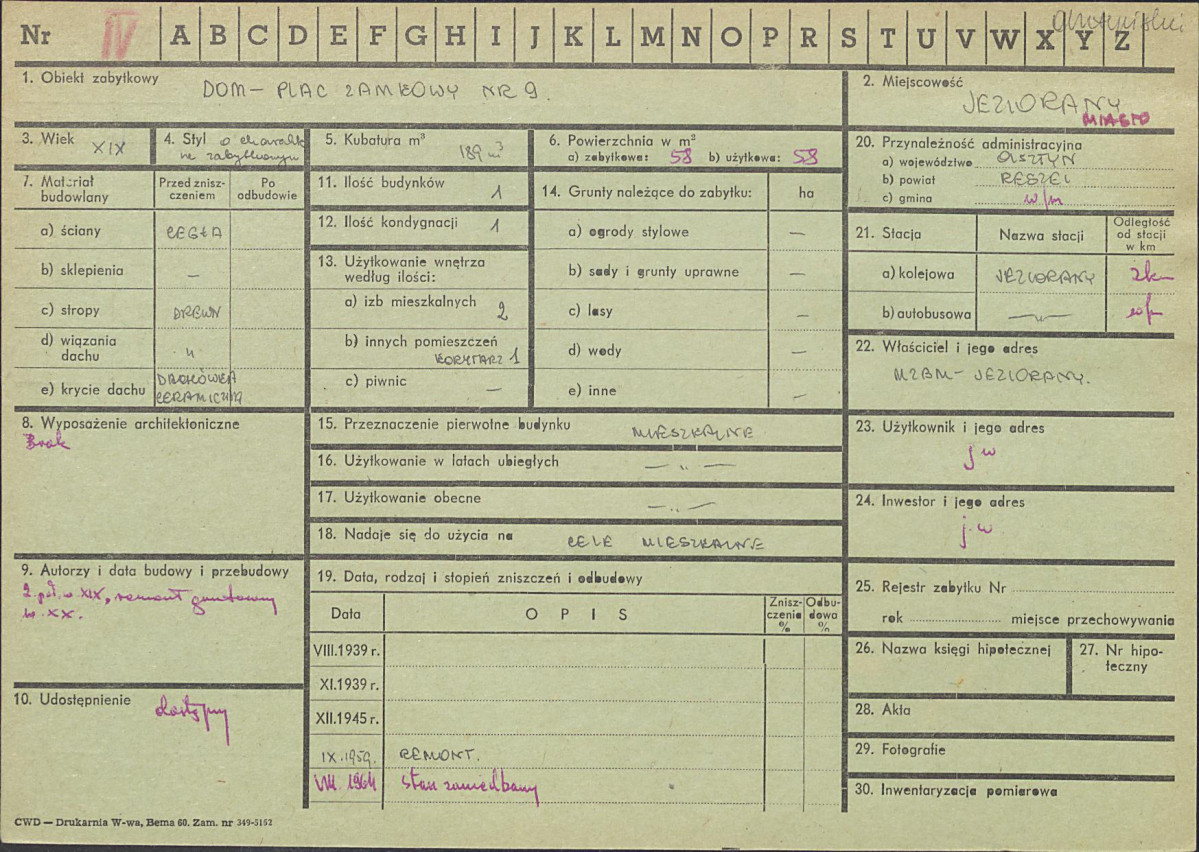 Nr IV A B C D E F G H I J K L M N O P R S T U V W X Y Z
1. Obiekt zabytkowy
DOM – PLAC ZAMKOWY NR 9.
2. Miejscowość
JEZIORANY
MIASTO
3. Wiek XIX
4. Styl o charakt
ze zabytkowym
5. Kubatura m³ 189 m³
6. Powierzchnia w m²
a) zabytkowa: 58 b) użytkowa: 58
20. Przynależność administracyjna
a) województwo OLSZTYN
b) powiat RESZEL
c) gmina w/m
7. Materiał budowlany
Przed znisz-
czeniem
Po
odbudowie
a) ściany CEGŁA
b) sklepienia —
c) stropy DREWN
d) wiązania
dachu "
e) krycie dachu DACHÓWKA
CERAMICZNA
11. Ilość budynków 1
12. Ilość kondygnacji 1
13. Użytkowanie wnętrza
według ilości:
a) izb mieszkalnych 2
b) innych pomieszczeń
KORYTARZ 1
c) piwnic —
14. Grunty należące do zabytku: ha
a) ogrody stylowe —
b) sady i grunty uprawne —
c) lasy —
d) wody —
e) inne —
21. Stacja Nazwa stacji
Odległość
od stacji
w km
a) kolejowa JEZIORANY 2km
b) autobusowa —"— w/m
22. Właściciel i jego adres
MZBM – JEZIORANY.
8. Wyposażenie architektoniczne
Brak
15. Przeznaczenie pierwotne budynku MIESZKALNE
16. Użytkowanie w latach ubiegłych — " —
17. Użytkowanie obecne — " —
18. Nadaje się do użycia na CELE MIESZKALNE
23. Użytkownik i jego adres
j w
24. Inwestor i jego adres
j. w
9. Autorzy i data budowy i przebudowy
2 poł. w XIX, remont gruntowny
w. XX.
10. Udostępnienie
dostępny
19. Data, rodzaj i stopień zniszczeń i odbudowy
Data O P I S
Znisz-
czenia
%
Odbu-
dowa
%
VIII.1939 r.
XI.1939 r.
XII.1945 r.
IX.1959. REMONT.
VIII. 1964 Stan zaniedbany
25. Rejestr zabytku Nr
rok miejsce przechowywania
26. Nazwa księgi hipotecznej
27. Nr hipo-
teczny
28. Akta
29. Fotografie
30. Inwentaryzacja pomiarowa
CWD — Drukarnia W-wa, Bema 60. Zam. nr 349-5162